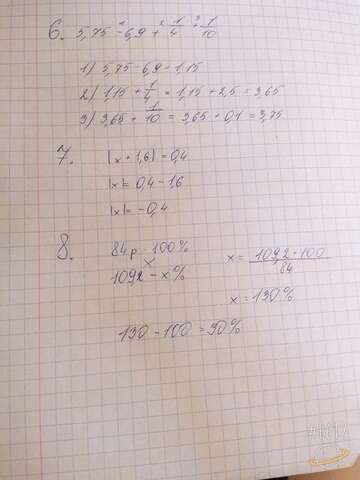 6. 5,75 - 6,9 + 1/4 + 1/10
1) 5,75 - 6,9 = 1,15
2) 1,15 + 1/4 = 1,15 + 2,5 = 3,65
3) 3,65 + 1/10 = 3,65 + 0,1 = 3,75
7. |x + 1,6| = 0,4
|x| = 0,4 - 1,6
|x| = -0,4
8. 84р - 100% x = 109,2 · 100 / 84
109,2 - x% x = 130%
130 - 100 = 30%